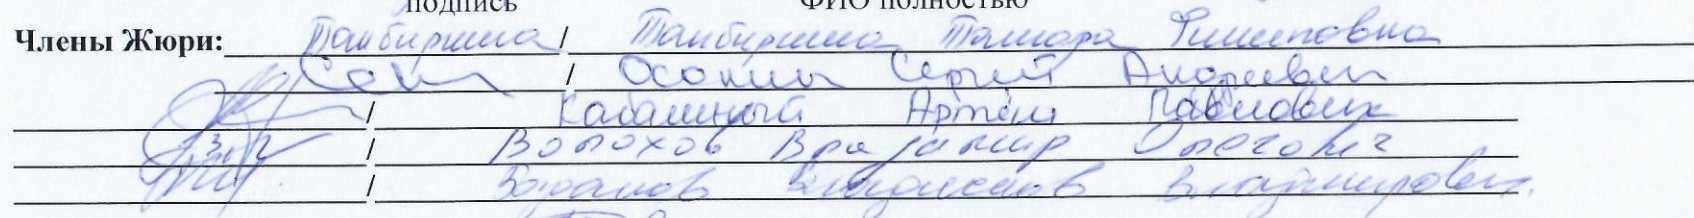 подпись ФИО полностью
Члены Жюри: Танбиршина / Танбиршина Тамара Филипповна
/ Осокин Сергей Андреевич
/ Артём Павлович
/ Волохов Владимир Олегович
/ Богданов Владислав Владимирович